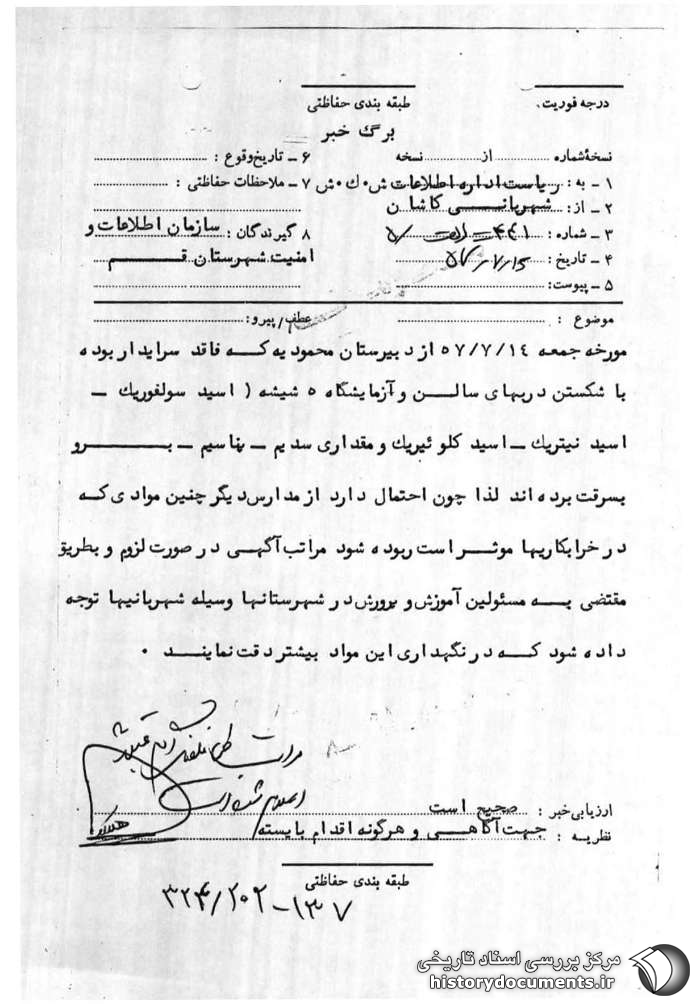 درجه فوریت. طبقه بندی حفاظتی
برگ خبر
نسخهٔ شماره از نسخه ۶ ـ تاریخ وقوع :
۱ ـ به : ریاست اداره اطلاعات ش۰ك۰ش ۷ ـ ملاحظات حفاظتی :
۲ ـ از : شهربانـــی کاشان
۳ ـ شماره : ۸ گیرندگان : سازمان اطلاعات و
۴ ـ تاریخ : امنیت شهرستان قـــم
۵ ـ پیوست:
موضوع : عطف/پیرو:
مورخه جمعه ۵۷/۷/۱۴ از دبیرستان محمودیه کـــه فاقد سرایدار بوده
با شکستن دربهای سالــن و آزمایشگاه ۵ شیشه ( اسید سولفوریك ـ
اسید نیتریك ـ اسید کلوئیریك و مقداری سدیم ـ پتاسیم ـ بــــــرو
بسرقت برده اند لذا چون احتمال دارد از مدارس دیگر چنین موادی که
در خرابکاریها موثــر است ربوده شود مراتب آگهــی در صورت لزوم و بطریق
مقتضی بـــه مسئولین آموزش و پرورش در شهرستانها وسیله شهربانیها توجه
داده شود کـــه در نگهداری این مواد بیشتر دقت نماینـــد ۰
ارزیابی خبر : صحیح است
نظریه : جهت آگاهـــی و هرگونه اقدام بایسته
طبقه بندی حفاظتی
۳۲۴/۲۰۲-۱۳۷
مرکز بررسی اسناد تاریخی
historydocuments.ir